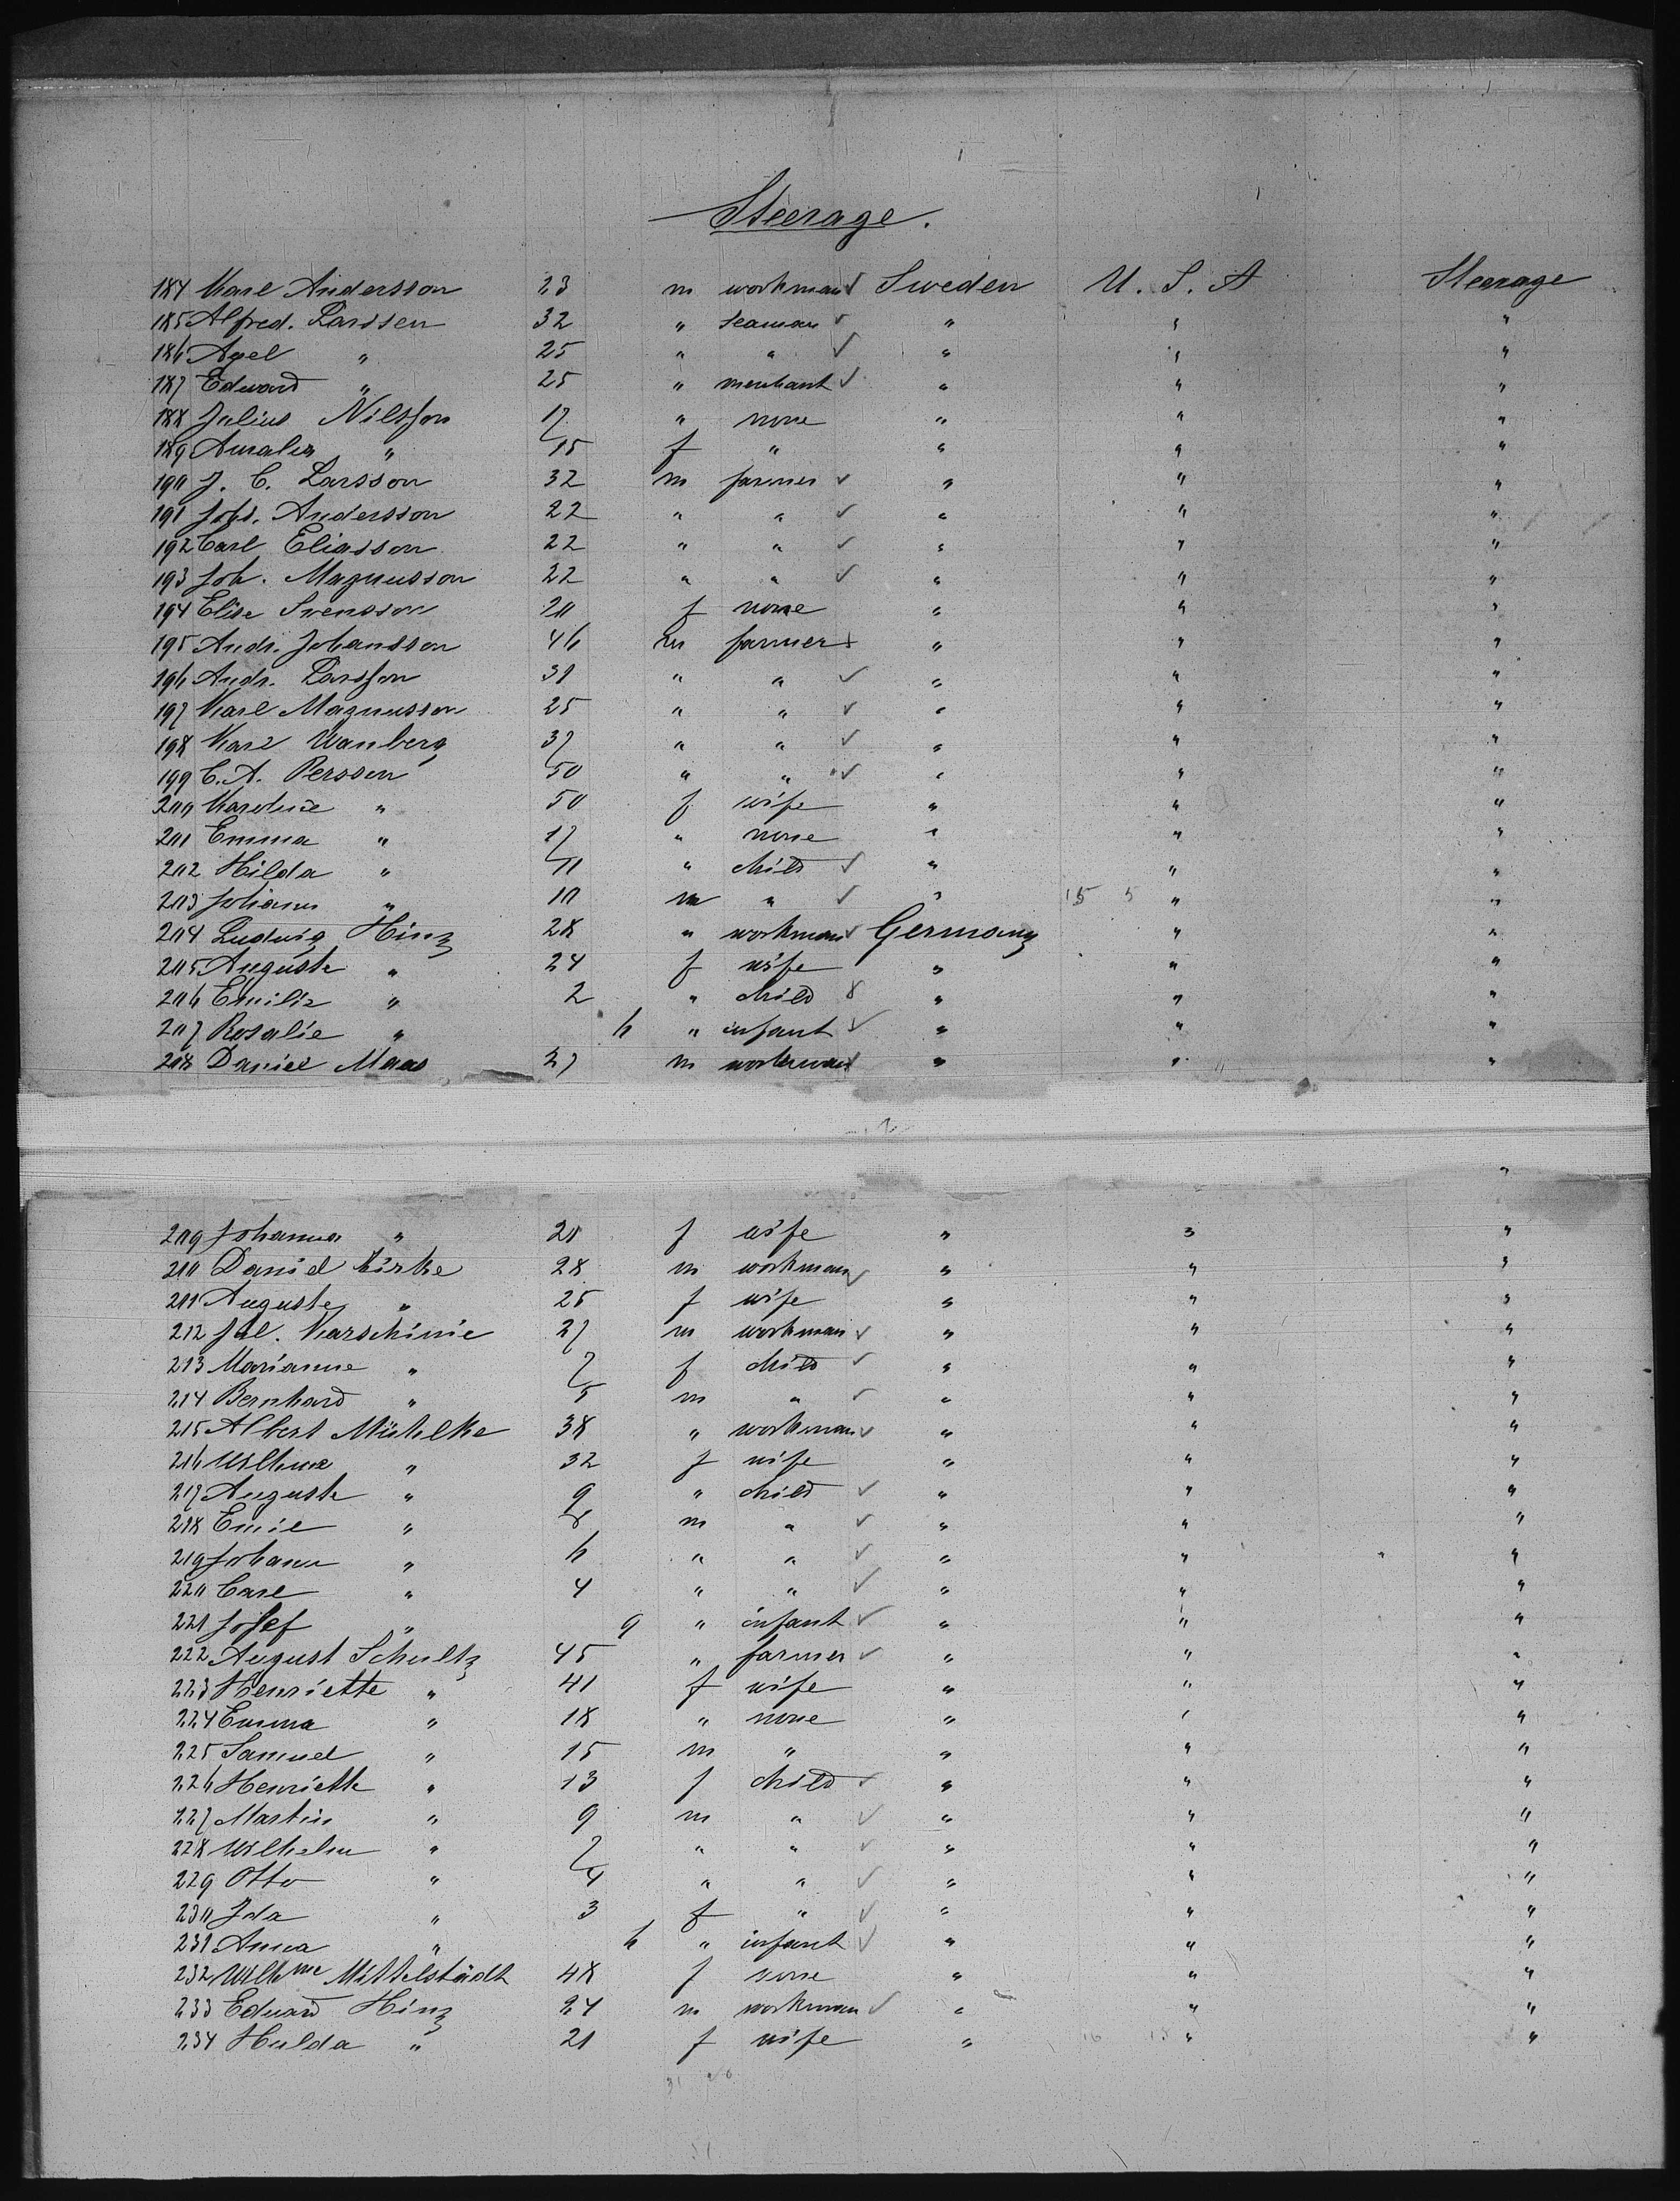 Steerage.
184 Karl Andersson 23 m workman Sweden U. S. A Steerage
185 Alfred. Larssen 32 " seaman " " "
186 Axel " 25 " " " " "
187 Edward " 25 " merchant " " "
188 Julius Nilsson 17 " none " " "
189 Amalia " 15 f " " " "
190 J. C. Larsson 32 m farmer " " "
191 Johs. Andersson 22 " " " " "
192 Carl Eliasson 22 " " " " "
193 Joh. Magnusson 22 " " " " "
194 Elise Svensson 20 f none " " "
195 Andr. Johansson 46 m farmer " " "
196 Andr. Larsson 31 " " " " "
197 Karl Magnusson 25 " " " " "
198 Karl Wanberg 37 " " " " "
199 C. A. Persson 50 " " " " "
200 Karoline " 50 f wife " " "
201 Emma " 17 " none " " "
202 Hilda " 11 " child " " "
203 Johann " 10 m " " " "
204 Ludwig Hinz 28 " workman Germany " "
205 Auguste " 24 f wife " " "
206 Emilie " 2 " child " " "
207 Rosalie " 6 " infant " " "
208 Daniel Maas 27 m workman " " "
209 Johanna " 21 f wife " " "
210 Daniel Kirke 28 m workman " " "
211 Auguste " 25 f wife " " "
212 Jul. Karschinie 27 m workman " " "
213 Marianne " 7 f child " " "
214 Bernhard " 5 m " " " "
215 Albert Mühlke 38 " workman " " "
216 Wilhme " 32 f wife " " "
217 Auguste " 9 " child " " "
218 Emil " 8 m " " " "
219 Johann " 6 " " " " "
220 Carl " 4 " " " " "
221 Josef " 9 " infant " " "
222 August Schultz 45 " farmer " " "
223 Henriette " 41 f wife " " "
224 Emma " 18 " none " " "
225 Samuel " 15 m " " " "
226 Henriette " 13 f child " " "
227 Martin " 9 m " " " "
228 Wilhelm " 7 " " " " "
229 Otto " 4 " " " " "
230 Ida " 3 f " " " "
231 Anna " 6 " infant " " "
232 Wilhme Mittelstädt 48 f none " " "
233 Eduard Hinz 24 m workman " " "
234 Hulda " 21 f wife " " "